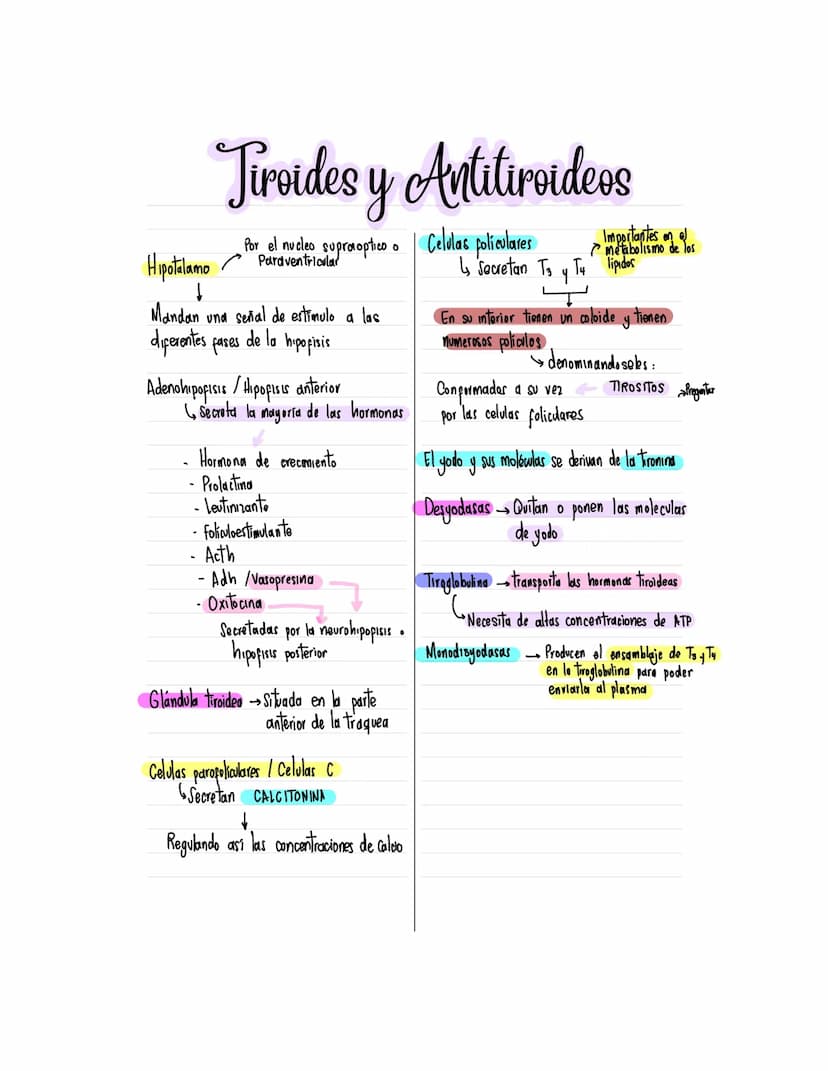 Tiroides y Antitiroideos
Hipotalamo
Por el nucleo supraoptico o
Paraventricular
Mandan una señal de estimulo a las
diferentes fases de la hipofisis
Adenohipofisis / Hipofisis anterior
Secreta la mayoría de las hormonas
- Hormona de crecimiento
- Prolactina
- Leutinizante
- Foliculoestimulante
- Acth
- Adh / Vasopresina
- Oxitocina
Secretadas por la neurohipofisis o
hipofisis posterior
Glándula tiroidea → Situada en la parte
anterior de la traquea
Celulas parafoliculares / Celulas C
Secretan CALCITONINA
Regulando así las concentraciones de Calcio
Celulas foliculares
Secretan T3 y T4
Importantes en el
metabolismo de los
lipidos
En su interior tienen un coloide y tienen
numerosos foliculos
denominandoseles:
Conformados a su vez ← TIROSITOS → Preguntar
por las celulas foliculares
El yodo y sus moléculas se derivan de la tronina
Desyodasas → Quitan o ponen las moleculas
de yodo
Tiroglobulina → transporta las hormonas tiroideas
Necesita de altas concentraciones de ATP
Monodisyodasas → Producen el ensamblaje de T3 y T4
en la tiroglobulina para poder
enviarla al plasma